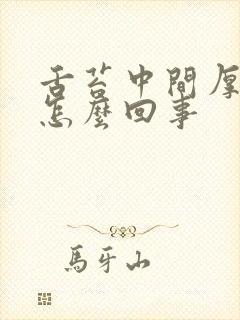 舌苔中間厚
怎麼回事
馬牙山